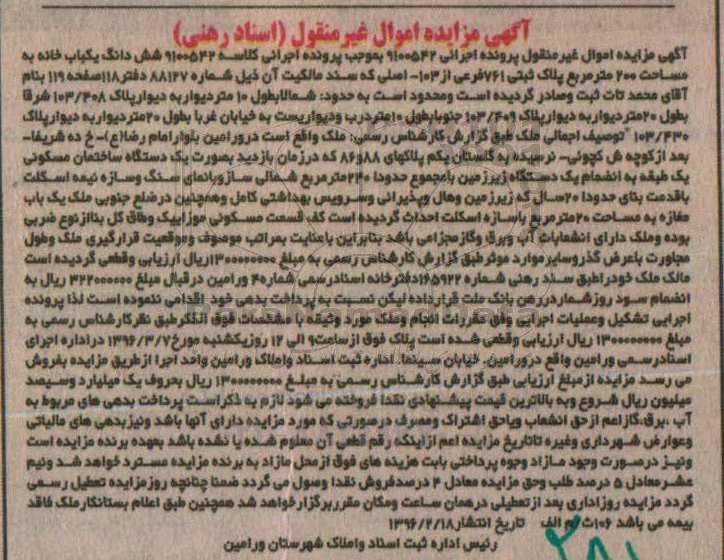 آگهی مزایده اموال غیرمنقول (اسناد رهنی)
آگهی مزایده اموال غیرمنقول پرونده اجرائی ۹۱۰۰۵۴۲ بموجب پرونده اجرائی کلاسه ۹۱۰۰۵۴۲ شش دانگ یکباب خانه به
مساحت ۲۰۰ مترمربع پلاک ثبتی ۷۶۱فرعی از۱۰۳- اصلی که سند مالکیت آن ذیل شماره ۸۸۱۲۷ دفتر۱۱۸صفحه ۱۱۹ بنام
آقای محمد تات ثبت وصادر گردیده است ومحدود است به حدود: شمالابطول ۱۰ متردیواربه دیوارپلاک ۱۰۳/۴۰۸ شرقا
بطول ۲۰متردیواربه دیوارپلاک ۱۰۳/۴۰۹ جنوبابطول ۱۰مترودرب ودیواریست به خیابان غربا بطول ۲۰متردیواربه دیوارپلاک
۱۰۳/۴۳۰ "توصیف اجمالی ملک طبق گزارش کارشناس رسمی: ملک واقع است درورامین بلوارامام رضا(ع)-خ ده شریفا-
بعد ازکوچه ش کچوئی- نرسیده به گلستان یکم پلاکهای ۸۸و۸۶ که درزمان بازدید بصورت یک دستگاه ساختمان مسکونی
یک طبقه به انضمام یک دستگاه زیرزمین بامجموع حدودا ۲۴۰مترمربع شمالی سازوبانمای سنگ وسازه نیمه اسکلت
باقدمت بنای حدودا ۲۰سال که زیرزمین وهال وپذیرائی وسرویس بهداشتی کامل وهمچنین درضلع جنوبی ملک یک باب
مغازه به مساحت ۲۰مترمربع باسازه اسکلت احداث گردیده است کف قسمت مسکونی موزاییک وطاق کل بناازنوع ضربی
بوده وملک دارای انشعابات آب وبرق وگازمجزامی باشد بنابراین باعنایت بمراتب موصوف وموقعیت قرارگیری ملک وطول
مجاورت باعرض گذروسایرموارد موثرطبق گزارش کارشناس رسمی به مبلغ ۱۳۰۰۰۰۰۰۰۰ریال ارزیابی وقطعی گردیده است
مالک ملک خودراطبق سند رهنی شماره ۱۶۵۹۲۲دفترخانه اسنادرسمی شماره۴ ورامین درقبال مبلغ ۳۲۲۰۰۰۰۰۰ ریال به
انضمام سود روزشماردررهن بانک ملت قرارداده لیکن نسبت به پرداخت بدهی خود اقدامی ننموده است لذا پرونده
اجرایی تشکیل وعملیات اجرایی وفق مقررات انجام وملک مورد وثیقه با مشخصات فوق الذکرطبق نظرکارشناس رسمی به
مبلغ ۱۳۰۰۰۰۰۰۰۰ ریال ارزیابی وقطعی شده است پلاک فوق ازساعت۹ الی ۱۲ روزیکشنبه مورخ۱۳۹۶/۳/۷ دراداره اجرای
اسنادرسمی ورامین واقع درورامین. خیابان سینما. اداره ثبت اسناد واملاک ورامین واحد اجرا ازطریق مزایده بفروش
می رسد مزایده ازمبلغ ارزیابی طبق گزارش کارشناس رسمی به مبلغ ۱۳۰۰۰۰۰۰۰۰ ریال بحروف یک میلیارد وسیصد
میلیون ریال شروع وبه بالاترین قیمت پیشنهادی نقدا فروخته می شود لازم به ذکراست پرداخت بدهی های مربوط به
آب ،برق،گازاعم ازحق انشعاب ویاحق اشتراک ومصرف درصورتی که مورد مزایده دارای آنها باشد ونیزبدهی های مالیاتی
وعوارض شهرداری وغیره تاتاریخ مزایده اعم ازاینکه رقم قطعی آن معلوم شده یا نشده باشد بعهده برنده مزایده است
ونیز درصورت وجود مازاد وجوه پرداختی بابت هزینه های فوق ازمحل مازاد به برنده مزایده مسترد خواهد شد ونیم
عشرمعادل ۵ درصد طلب وحق مزایده معادل ۴ درصدفروش نقدا وصول می گردد ضمنا چنانچه روزمزایده تعطیل رسمی
گردد مزایده روزاداری بعد ازتعطیلی درهمان ساعت ومکان مقرربرگزارخواهد شد همچنین طبق اعلام بستانکارملک فاقد
بیمه می باشد ۱۰۶ث م الف تاریخ انتشار۱۳۹۶/۲/۱۸
رئیس اداره ثبت اسناد واملاک شهرستان ورامین